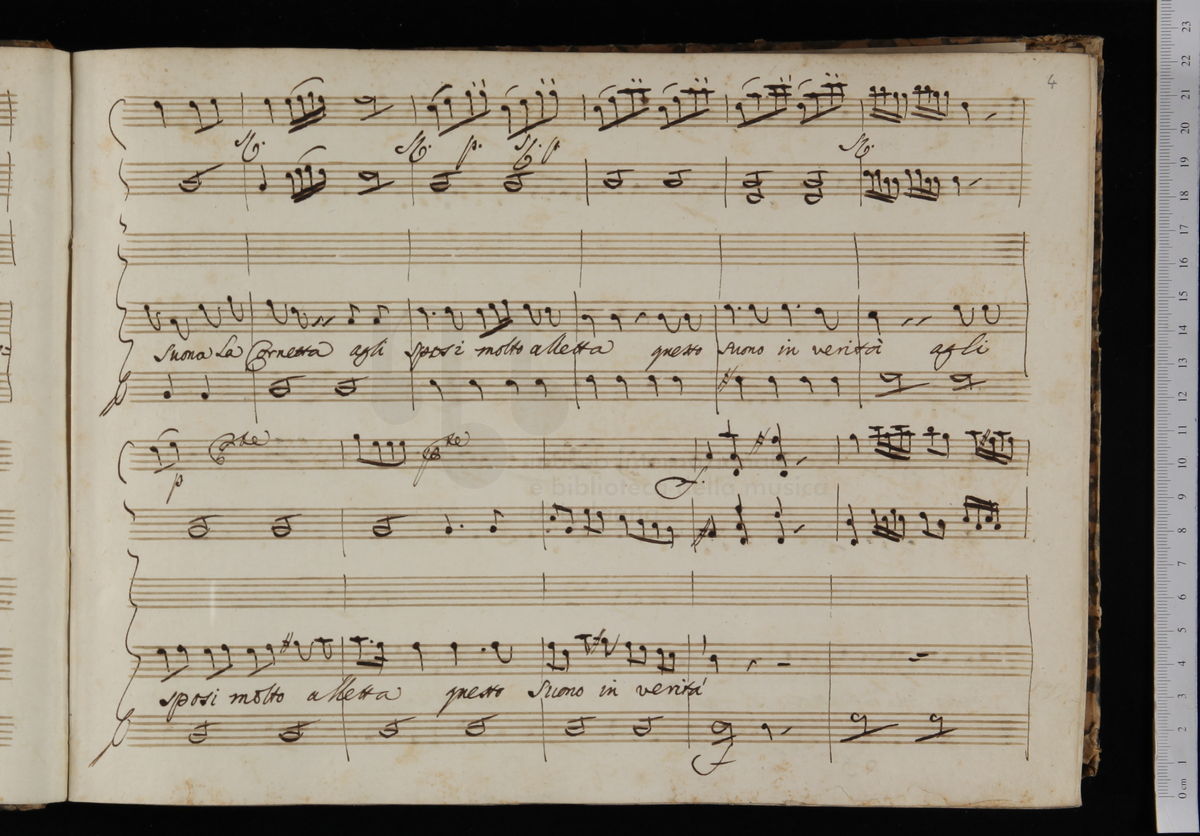 4
p. p
Suona La Cornetta agli sposi molto alletta questo suono in verità agli
p
sposi molto alletta questo suono in verità
f
e biblioteca della musica
23
22
21
20
19
18
17
16
15
14
13
12
11
10
9
8
7
6
5
4
3
2
1
0 cm